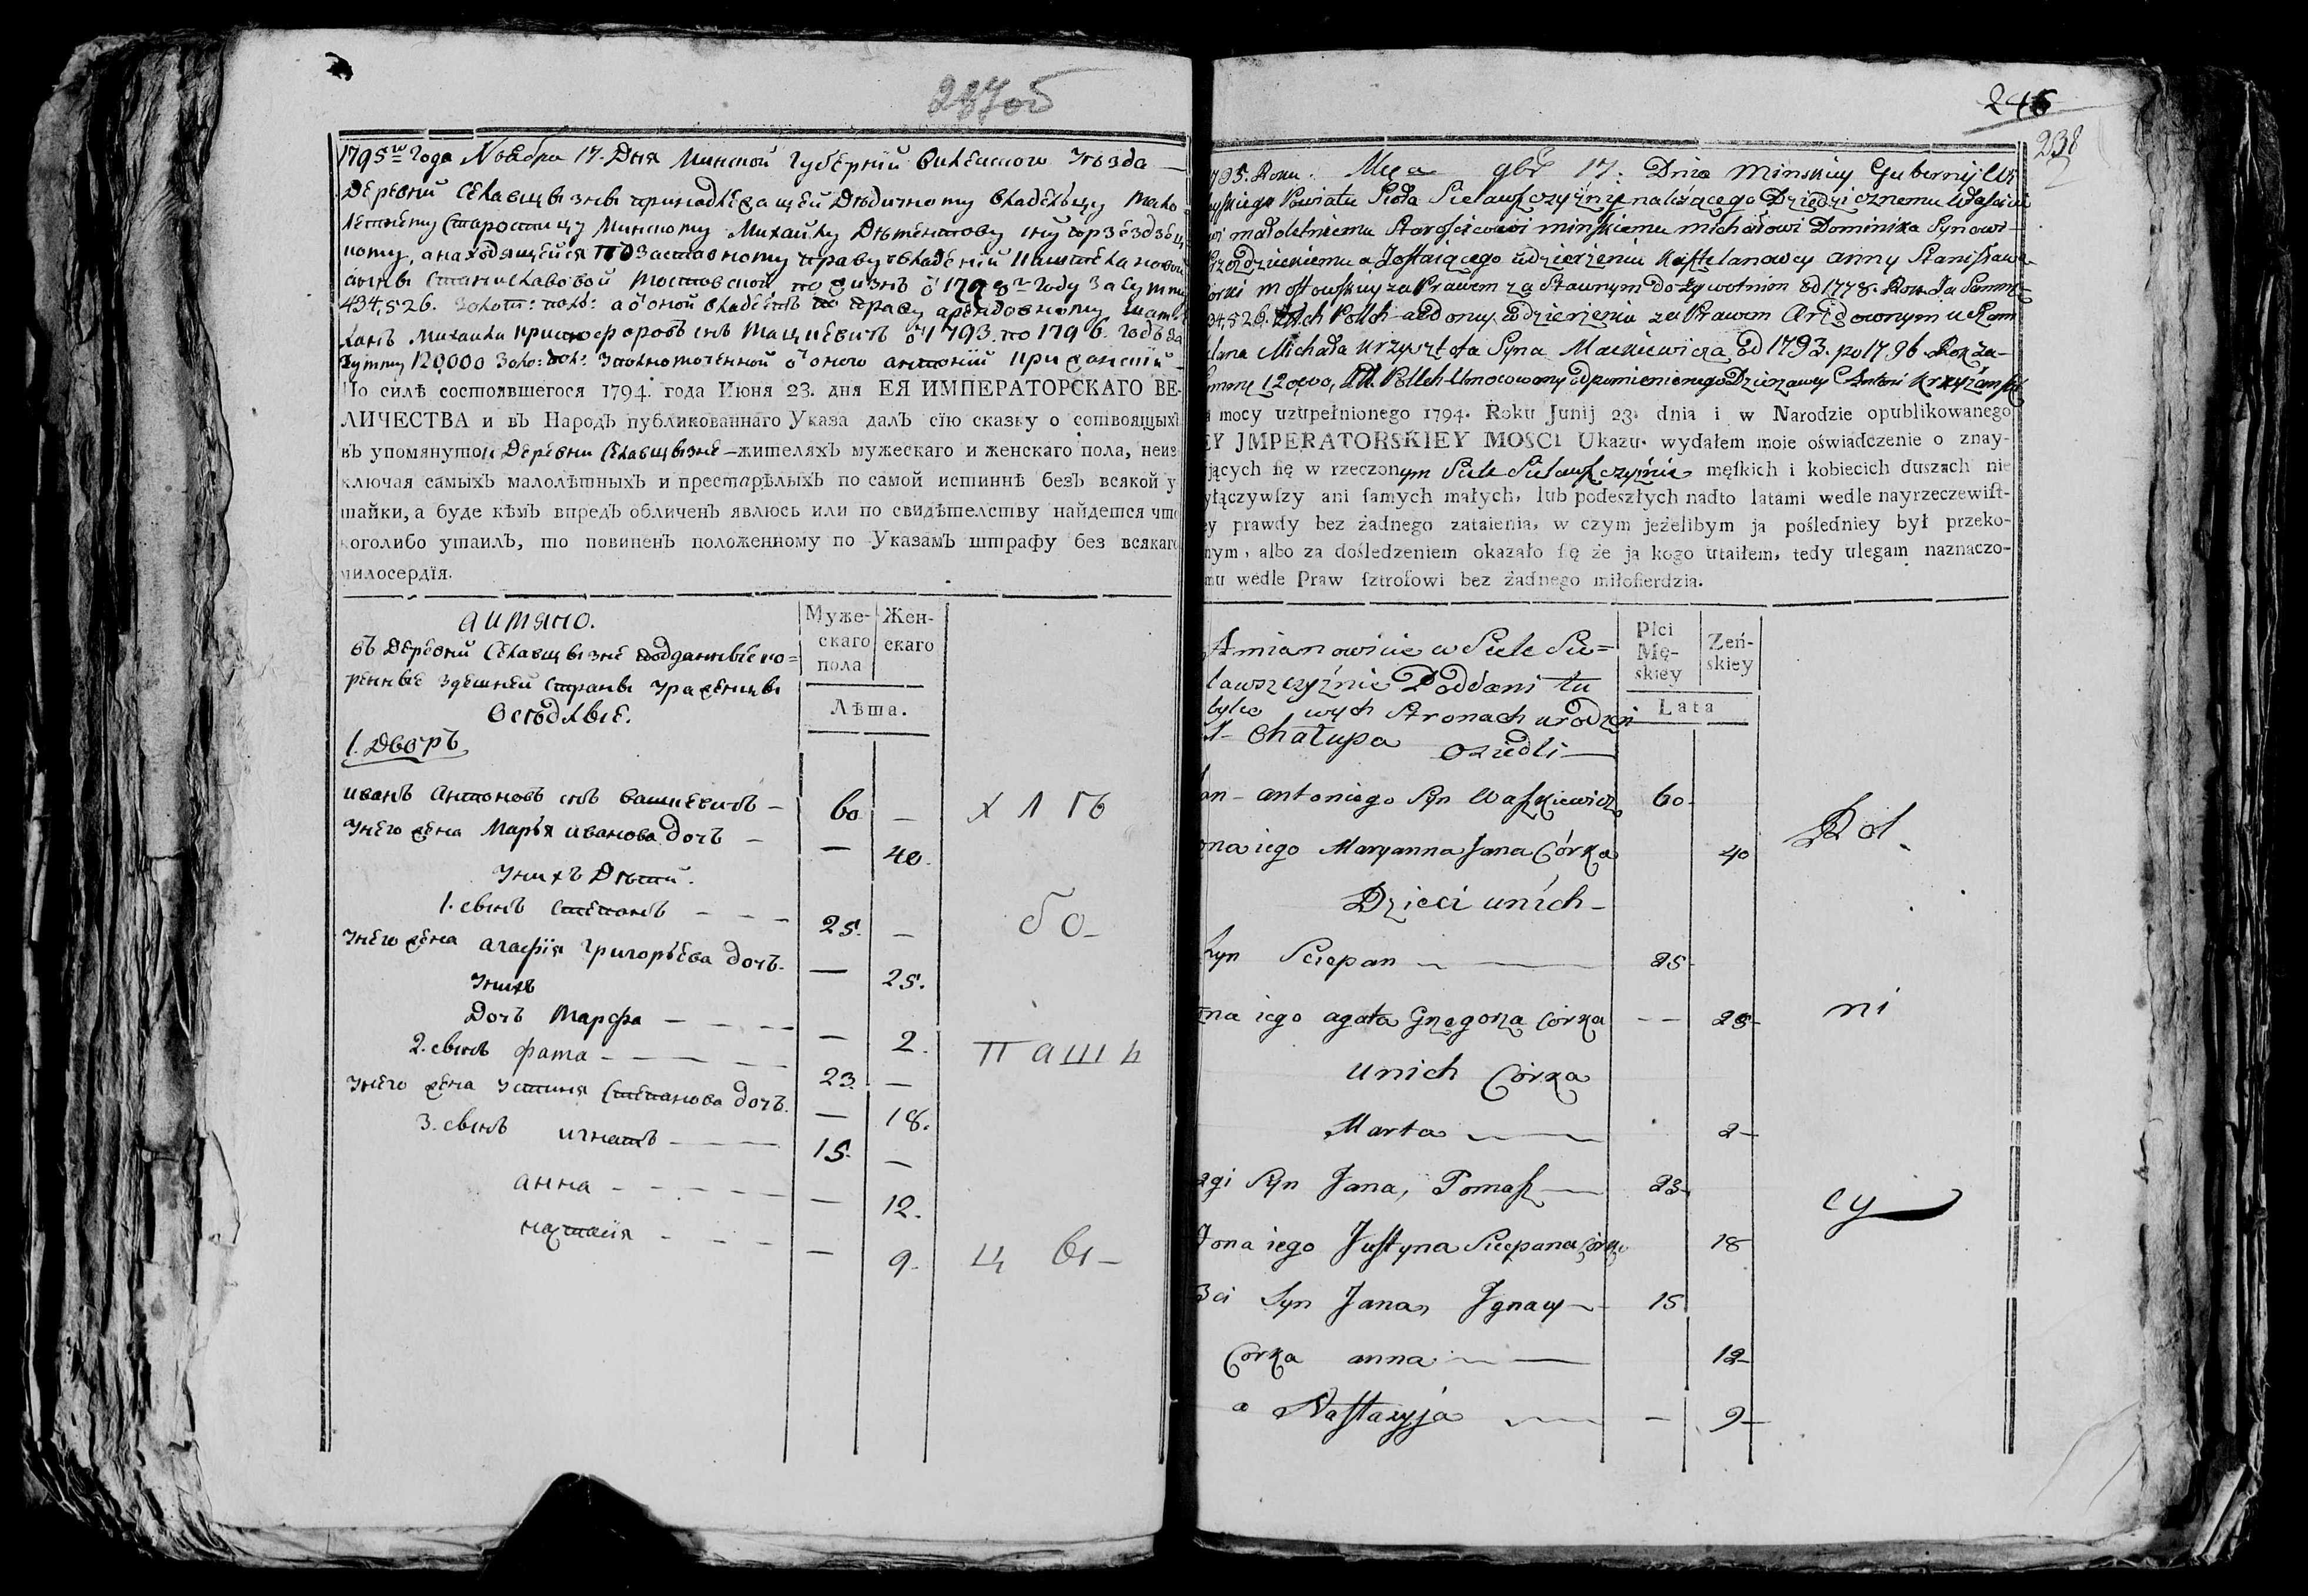 237об
1795го Года Ноября 17. Дня Минской Губернїи Вилейского Уезда
Деревни Селавщызны принадлежащей Дедичному Владельцу мало
летнему Старостицу Минскому Михайлу Дыментову сну
ному, а находящейся По Заставному праву во владенїи
Станиславовой Мостовской по жизнь о 1778го Году За Сумму
434,526. Золот: пол: а о оной владеетъ по праву арендовному
ланъ Михаилъ Криштофоровъ снъ Мацкевичъ о 1793. по 1796. Годъ за
Сумму 120,000 Золо: пол: Уполномоченной о оного антонїй
По силѣ состоявшегося 1794. года Июня 23. дня ЕЯ ИМПЕРАТОРСКАГО ВЕ-
ЛИЧЕСТВА и въ Народъ публикованнаго Указа далъ сїю сказку о состоящыхъ
въ упомянутой Деревни Селавщызне жителяхъ мужескаго и женскаго пола, неиз
ключая самыхъ малолѣтныхъ и престарѣлыхъ по самой истиннѣ безъ всякой у
тайки, а буде кѣмъ впредъ обличенъ явлюсь или по свидѣтелству найдется что
коголибо утаилъ, то повиненъ положенному по Указамъ штрафу без всякаго
милосердїя.
аимяно.
въ Деревни Селавщызне подданные ко=
ренные здешней страны уроженцы
Оседлые.
Муже-
скаго
пола
Жен-
скаго
Лѣта.
1. Дворъ
иванъ Антоновъ снъ Вашкевичъ — 60 —
Унего жена Марья иванова дочь — — 40.
Унихъ Дѣти.
1. сынъ Степанъ — — — 25. —
Унего жена агафїя Григорьева дочъ. — 25.
Унихъ
Дочъ Марфа — — — — 2.
2. сынъ фама — — — — 23. —
Унего жена Устиня Степанова дочъ. — 18.
3. сынъ игнатъ — — — 15. —
анна — — — — — 12.
настасїя — — — — 9.
х л ѣб
бо-
пашц
ц ы-
246
238
1795. Roku. Mca 9br 17. Dnia Minskiey Gubernij Wi
leyskiego Powiatu Sioła Sielawszczyźny należącego Dziedzicznemu Właścicie
lowi małoletniemu Starościcowi minskiemu michałowi Dominika Synowi
a Zostaiącego w dzierżeniu Kasztelanowey anny Stanisława
Córki Mostowskiey za Prawem zastawnym dożywotnim od 1778. Roku Za Summę
434,526. Złłch Pollch a od oney w dzierżeniu za Prawem Arędownym u Szam
belana Michała Krzysztofa Syna Mackiewicza od 1793. po 1796. Rok za
Summę 120000, Złł. Pollch Umocowany od pomienionego Dzierzawcy Antoni Krzyżanski
mocy uzupełnionego 1794. Roku Junij 23. dnia i w Narodzie opublikowanego
EY JMPERATORSKIEY MOSCI Ukazu. wydałem moie oświadczenie o znay-
jących ſię w rzeczonym Siele Sielawszczyźnie męſkich i kobiecich duszach nie
yłączywſzy ani ſamych małych, lub podeszłych nadto latami wedle nayrzeczewiſt-
ey prawdy bez żadnego zataienia, w czym jeżelibym ja pośledniey był przeko-
nym, albo za dośledzeniem okazało ſię że ja kogo utaiłem, tedy ulegam naznaczo-
mu wedle Praw ſztrofowi bez żadnego miłoſierdzia.
Amianowicie w Siele Sie=
lawszczyźnie Poddani tu
bylce w tych Stronach urodzeni
1- Chałupa osiedli
Płci
Mę-
skiey
Zeń-
skiey
Lata
Jan - antoniego Syn Waszkiewicz 60-
żona iego Maryanna Jana Córka 40
Dzieci u nich
Syn Sciepan 25-
żona iego agata Grzegorza Corka — 25-
u nich Corka
Marta 2-
Drugi Syn Jana, Tomasz 23-
Żona iego Justyna Sciepana Córka 18
3ci Syn Jana, Jgnacy 15
Corka anna 12-
a Nastazyja — 9-
Rol
ni
cy